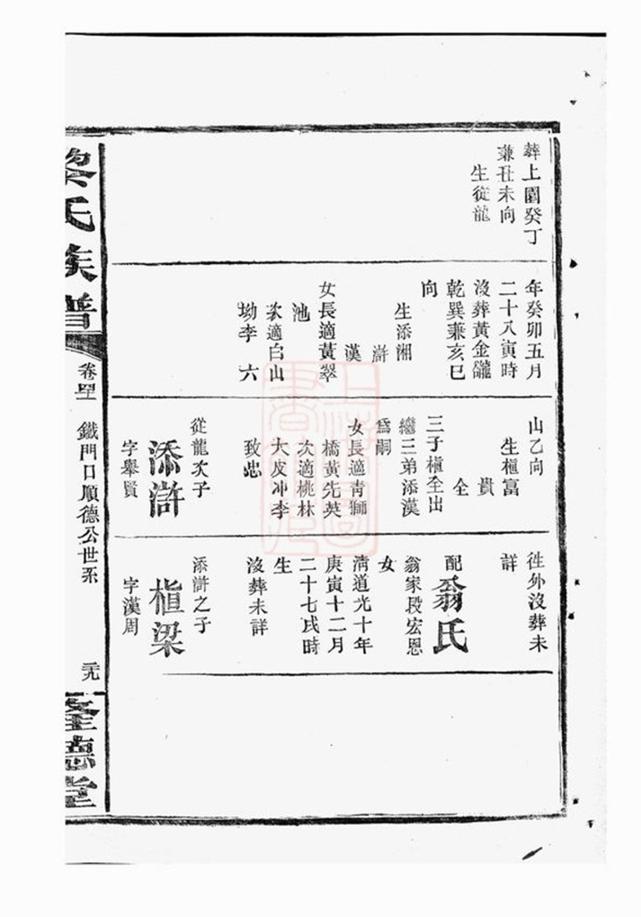 葬上園癸丁
兼丑未向
生從龍
年癸卯五月
二十八寅時
沒葬黃金隴
乾巽兼亥巳
向
生添湘
滸
漢
女長適黃翠
池
次適白山
坳李六
山乙向
生楦富
貴
全
三子楦全出
繼三弟添漢
爲嗣
女長適青獅
橋黃先英
次適桃林
大皮冲李
致忠
從龍次子
添滸
字舉賢
徃外沒葬未
詳
配翁氏
翁家段宏恩
女
淸道光十年
庚寅十二月
二十七戌時
生
沒葬未詳
添滸之子
楦梁
字漢周
黎氏族譜
鐵門口順德公世系
德堂